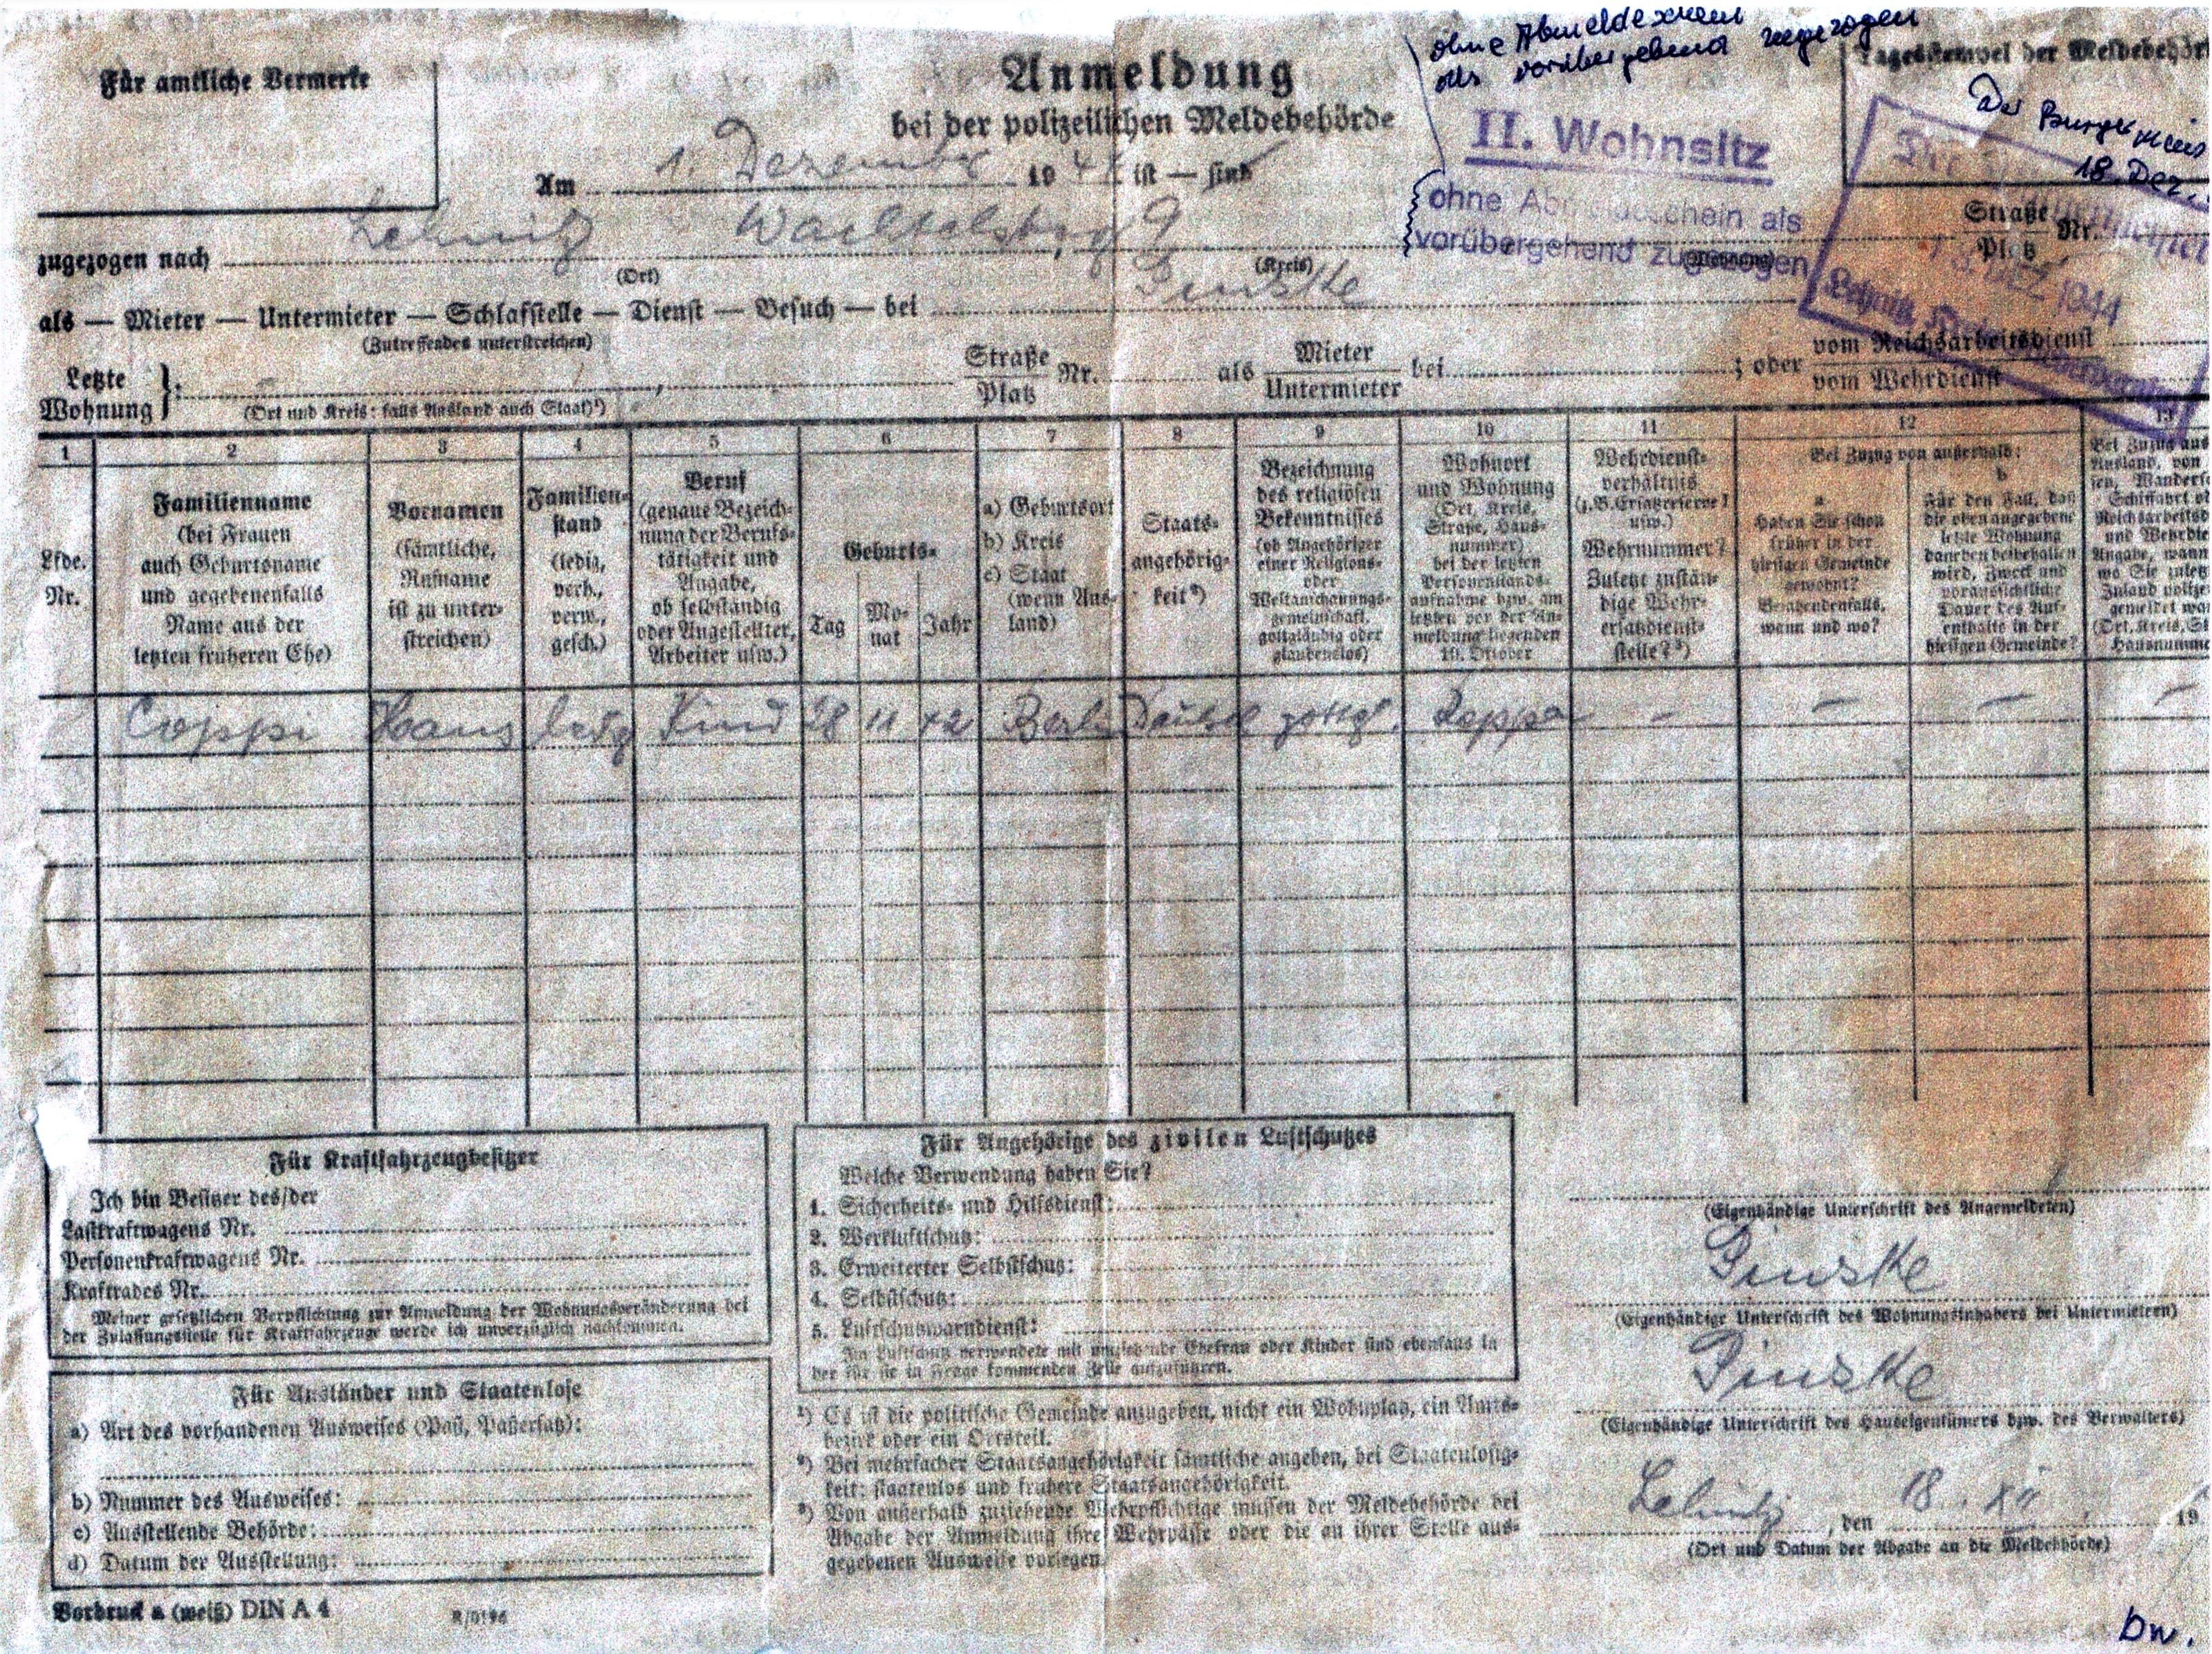 ohne Abmeldeschein
als vorübergehend zugezogen
Für amtliche Vermerke
Anmeldung
bei der polizeilichen Meldebehörde
Tagesstempel der Meldebehör
Der Burgermeis
18. Dez.
II. Wohnsitz
Am 1. Dezember 1944 ist — sind
ohne Abmeldeschein als
vorübergehend zugezogen
zugezogen nach Lehnitz, Wachtelsberg 9
Straße
Platz Nr.
(Ort) (Kreis) (Wohnung)
1944
als — Mieter — Untermieter — Schlafstelle — Dienst — Besuch — bei Pinzke
(Zutreffendes unterstreichen)
Letzte
Wohnung
Straße
Platz Nr. als Mieter
Untermieter bei ; oder vom Reichsarbeitsdienst
vom Wehrdienst
(Ort und Kreis: falls Ausland auch Staat)¹)
1 2 3 4 5 6 7 8 9 10 11 12 13
Lfde.
Nr.
Familienname
(bei Frauen
auch Geburtsname
und gegebenenfalls
Name aus der
letzten früheren Ehe)
Vornamen
(sämtliche,
Rufname
ist zu unter-
streichen)
Familien-
stand
(ledig,
verh.,
verw.,
gesch.)
Beruf
(genaue Bezeich-
nung der Berufs-
tätigkeit und
Angabe,
ob selbständig
oder Angestellter,
Arbeiter usw.)
Geburts-
Tag
Mo-
nat
Jahr
a) Geburtsort
b) Kreis
c) Staat
(wenn Aus-
land)
Staats-
angehörig-
keit²)
Bezeichnung
des religiösen
Bekenntnisses
(ob Angehöriger
einer Religions-
oder
Weltanschauungs-
gemeinschaft,
gottgläubig oder
glaubenslos)
Wohnort
und Wohnung
(Ort, Kreis,
Straße, Haus-
nummer)
bei der letzten
Personenstands-
aufnahme bzw. am
letzten vor der An-
meldung liegenden
10. Oktober
Wehrdienst-
verhältnis
(z.B. Ersatzreserve I
usw.)
Wehrnummer?
Zuletzt zustän-
dige Wehr-
ersatzdienst-
stelle?³)
Bei Zuzug von außerhalb:
a
Haben Sie schon
früher in der
hiesigen Gemeinde
gewohnt?
Bejahendenfalls,
wann und wo?
b
Für den Fall, daß
die oben angegebene
letzte Wohnung
daneben beibehalten
wird, Zweck und
voraussichtliche
Dauer des Auf-
enthalts in der
hiesigen Gemeinde?
Bei Zuzug aus
Ausland, von
sen, Wanders
Schiffahrt o
Reichsarbeitsd
und Wehrdie
Angabe, wann
wo Sie zuletz
Inland polize
gemeldet wa
(Ort, Kreis, St
Hausnumm
Coppi Hans ledg Kind 28 11 42 Berlin Deutsch gottgl. — — — —
Für Kraftfahrzeugbesitzer
Ich bin Besitzer des/der
Lastkraftwagens Nr.
Personenkraftwagens Nr.
Kraftrades Nr.
Meiner gesetzlichen Verpflichtung zur Anmeldung der Wohnungsveränderung bei
der Zulassungsstelle für Kraftfahrzeuge werde ich unverzüglich nachkommen.
Für Ausländer und Staatenlose
a) Art des vorhandenen Ausweises (Paß, Paßersatz):
b) Nummer des Ausweises:
c) Ausstellende Behörde:
d) Datum der Ausstellung:
Vordruck a (weiß) DIN A 4
Für Angehörige des zivilen Luftschutzes
Welche Verwendung haben Sie?
1. Sicherheits- und Hilfsdienst:
2. Werkluftschutz:
3. Erweiterter Selbstschutz:
4. Selbstschutz:
5. Luftschutzwarndienst:
Im Luftschutz verwendete mit umziehende Ehefrau oder Kinder sind ebenfalls in
der für sie in Frage kommenden Zeile aufzuführen.
¹) Es ist die politische Gemeinde anzugeben, nicht ein Wohnplatz, ein Amts-
bezirk oder ein Ortsteil.
²) Bei mehrfacher Staatsangehörigkeit sämtliche angeben, bei Staatenlosig-
keit: staatenlos und frühere Staatsangehörigkeit.
³) Von außerhalb zuziehende Wehrpflichtige müssen der Meldebehörde bei
Abgabe der Anmeldung ihre Wehrpässe oder die an ihrer Stelle aus-
gegebenen Ausweise vorlegen.
(Eigenhändige Unterschrift des Angemeldeten)
Pinzke
(Eigenhändige Unterschrift des Wohnungsinhabers bei Untermietern)
Pinzke
(Eigenhändige Unterschrift des Hauseigentümers bzw. des Verwalters)
Lehnitz, den 18. XII. 19
(Ort und Datum der Abgabe an die Meldebehörde)
bw.